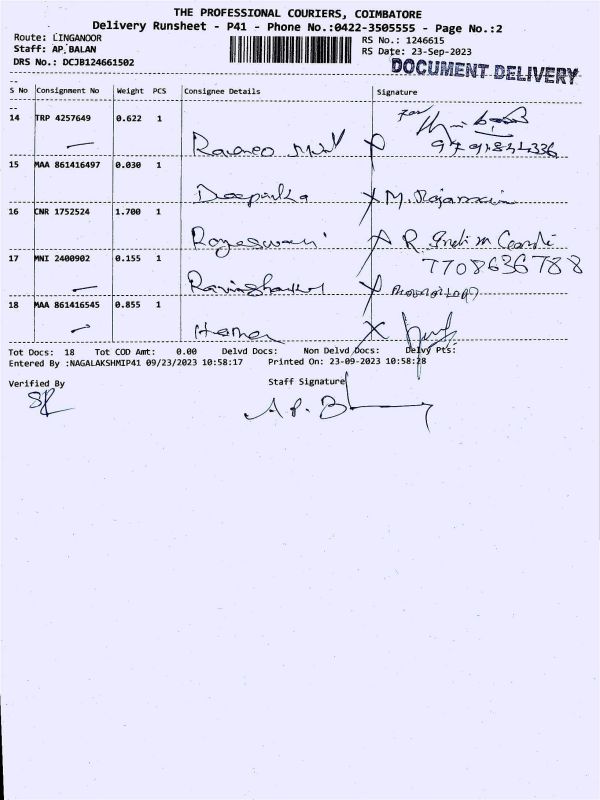 THE PROFESSIONAL COURIERS, COIMBATORE
Delivery Runsheet - P41 - Phone No.:0422-3505555 - Page No.:2
Route: LINGANOOR
Staff: AP.BALAN
DRS No.: DCJB124661502
RS No.: 1246615
RS Date: 23-Sep-2023
DOCUMENT DELIVERY
S No Consignment No Weight PCS Consignee Details Signature
14 TRP 4257649 0.622 1
15 MAA 861416497 0.030 1
Deepika X M. Rajamani
16 CNR 1752524 1.700 1
Rajeswari X R. Indira Gandhi
7708636788
17 MNI 2400902 0.155 1
Ravishankar X
18 MAA 861416545 0.855 1
Hema X
Tot Docs: 18 Tot COD Amt: 0.00 Delvd Docs: Non Delvd Docs: Delvy Pts:
Entered By :NAGALAKSHMIP41 09/23/2023 10:58:17 Printed On: 23-09-2023 10:58:28
Verified By Staff Signature
A.P. B